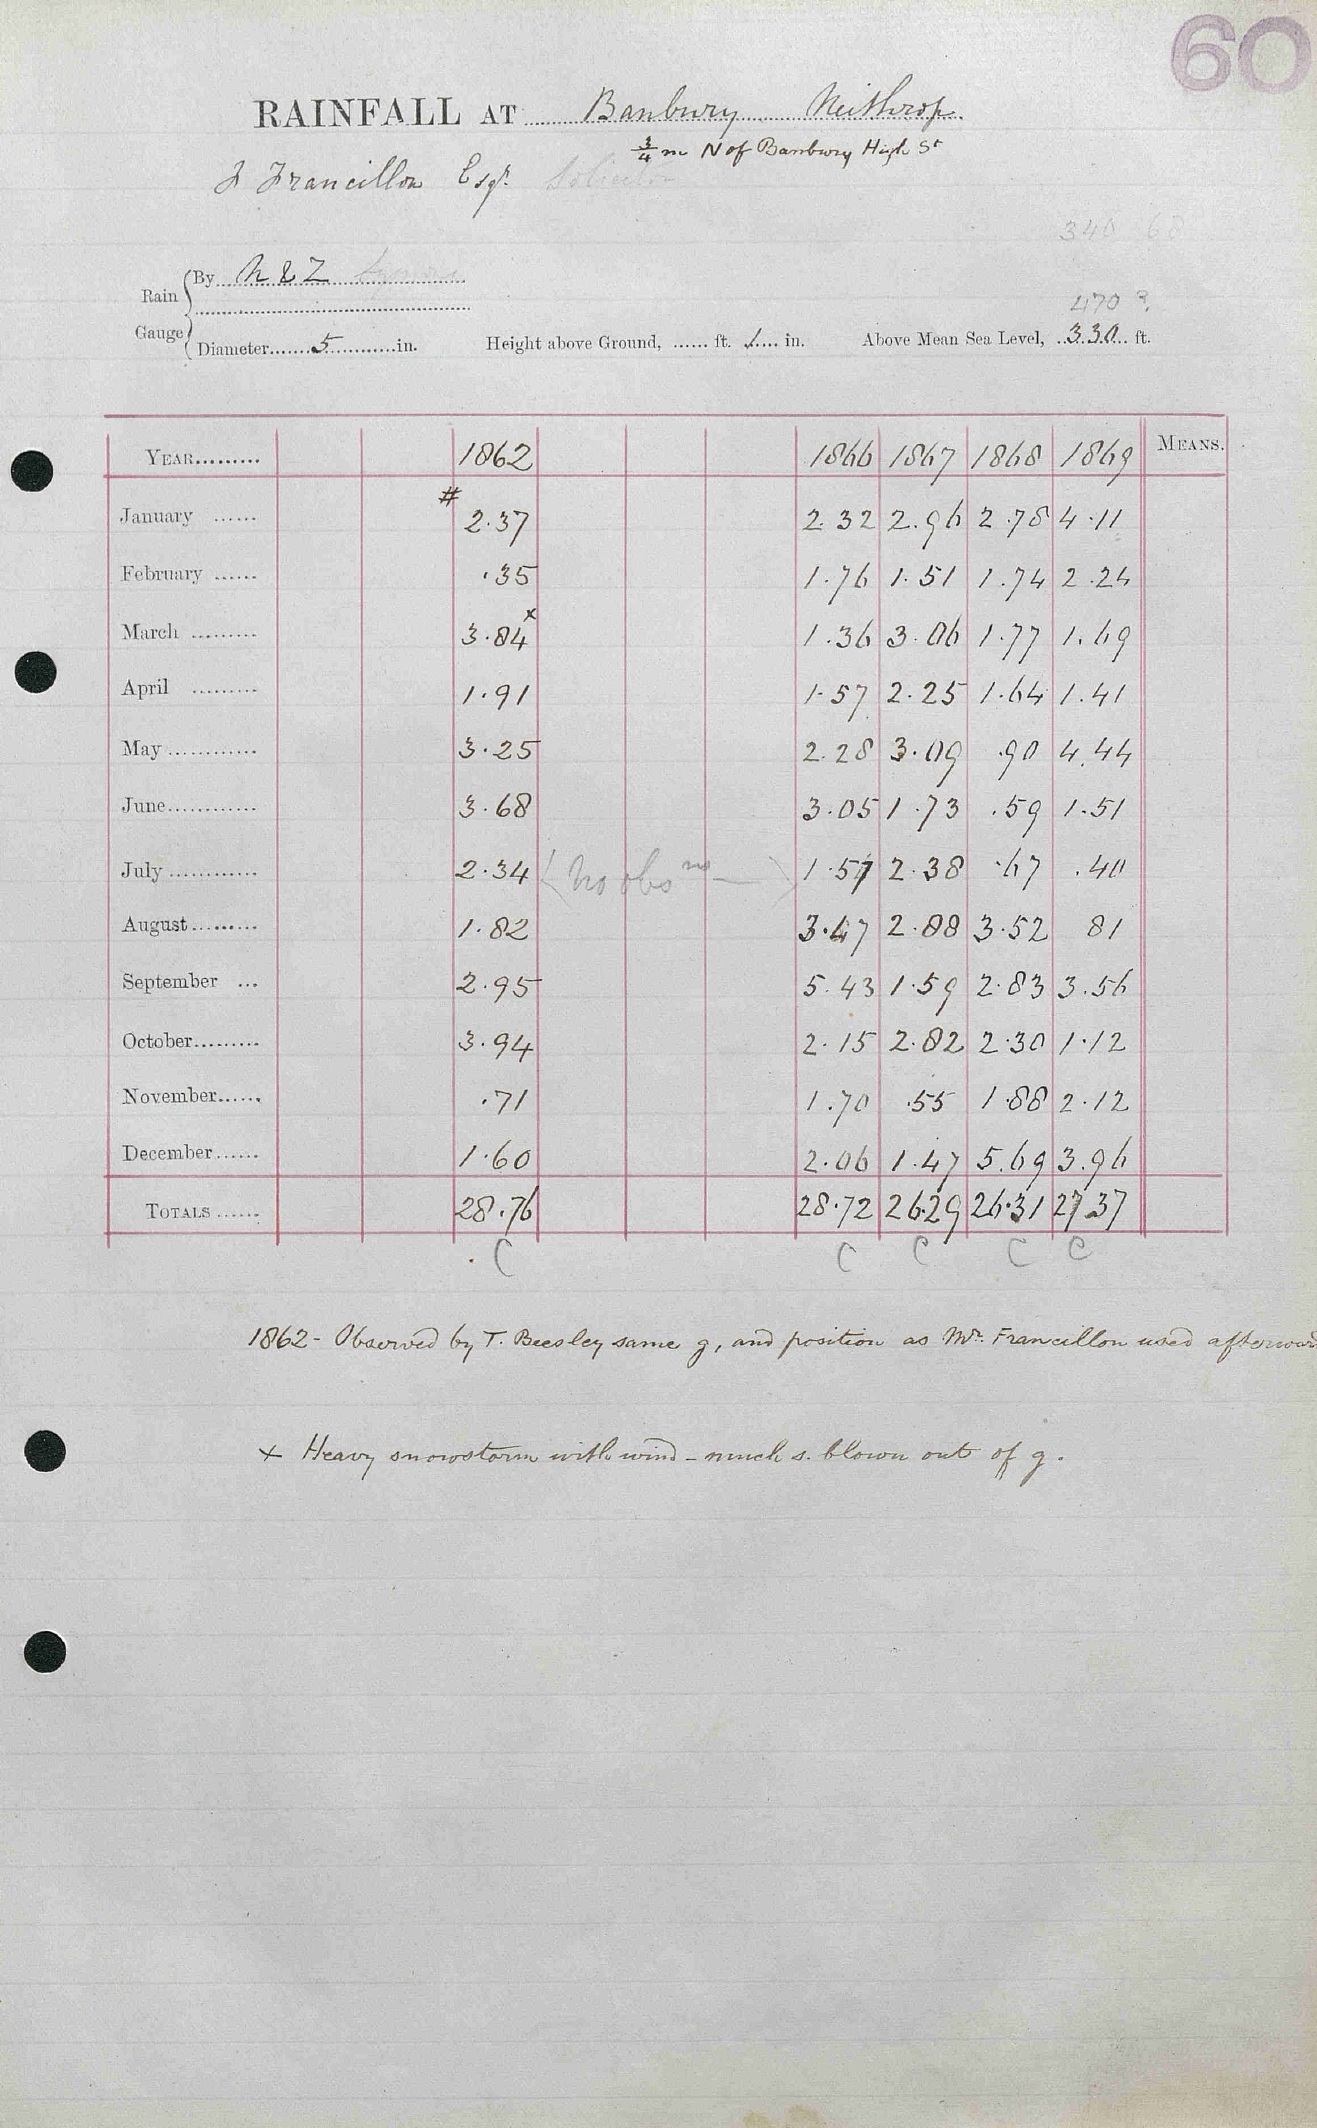 60
RAINFALL AT Banbury Neithrop
3/4 m N of Banbury High St
J Francillon Esqr. Solicitor
340 60
Rain Gauge
By N & Z Symons
470 ?
Diameter 5 in. Height above Ground, ...... ft. 1 in. Above Mean Sea Level, 330 ft.
YEAR......... 1862 1866 1867 1868 1869 MEANS.
#
January ...... 2.37 2.32 2.96 2.78 4.11
February ...... .35 1.76 1.51 1.74 2.24
March ......... 3.84x 1.36 3.06 1.77 1.69
April ......... 1.91 1.57 2.25 1.64 1.41
May ............ 3.25 2.28 3.09 .90 4.44
June............ 3.68 3.05 1.73 .59 1.51
July ............ 2.34 (No obsns —) 1.57 2.38 .67 .40
August......... 1.82 3.47 2.88 3.52 81
September ... 2.95 5.43 1.59 2.83 3.56
October......... 3.94 2.15 2.82 2.30 1.12
November...... .71 1.70 .55 1.88 2.12
December...... 1.60 2.06 1.47 5.69 3.96
TOTALS ...... 28.76 28.72 26.29 26.31 27.37
C C C C C
1862 - Observed by T. Beesley same g, and position as Mr. Francillon used afterward
x Heavy snowstorm with wind - much s. blown out of g.